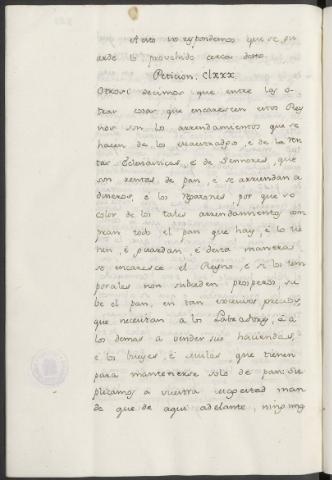 A esto vos respondemos que se gu
arde lo proveheido cerca desto
Peticion. Clxxx
Otrosi decimos que entre las o-
tras cosas que encarescen estos Rey
nos son los arrendamientos que se
hacen de los Maestradgos, e de las Ren
tas Eclesiasticas, e de Sennores, que
son rentas de pan, e se arriendan a
dineros, e los Naturales, por que so
color de los tales arrendamientos com
pran todo el pan que hay, e lo tie
nen, e guardan, e desta manera
se encaresce el Reyno, e si los tem
porales non suceden prosperos, su
be el pan en tan excesivos precios,
que necesitan a los Labradores, e a
los demas a vender sus haciendas,
e los bueyes, e mulas, que tienen
para mantenerse solo de pan: Su
plicamos a vuestra Magestad man
de que de aqui adelante, ningung